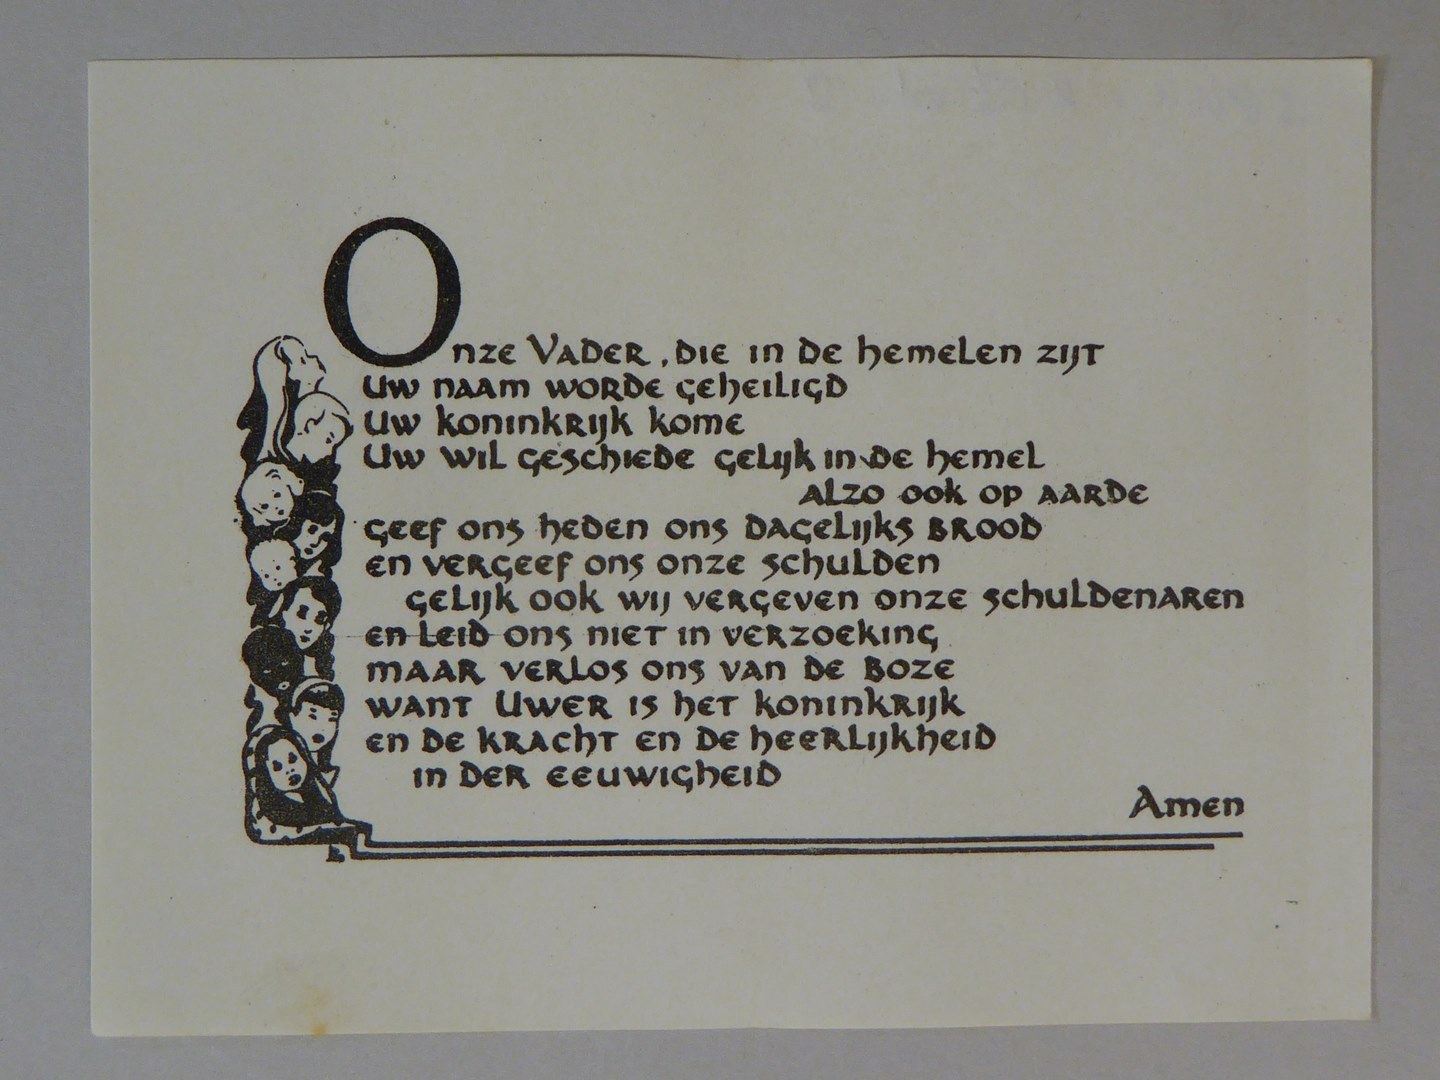 Onze Vader, die in de hemelen zijt
Uw naam worde geheiligd
Uw koninkrijk kome
Uw wil geschiede gelijk in de hemel
alzo ook op aarde
geef ons heden ons dagelijks brood
en vergeef ons onze schulden
gelijk ook wij vergeven onze schuldenaren
en leid ons niet in verzoeking
maar verlos ons van de boze
want Uwer is het koninkrijk
en de kracht en de heerlijkheid
in der eeuwigheid
Amen